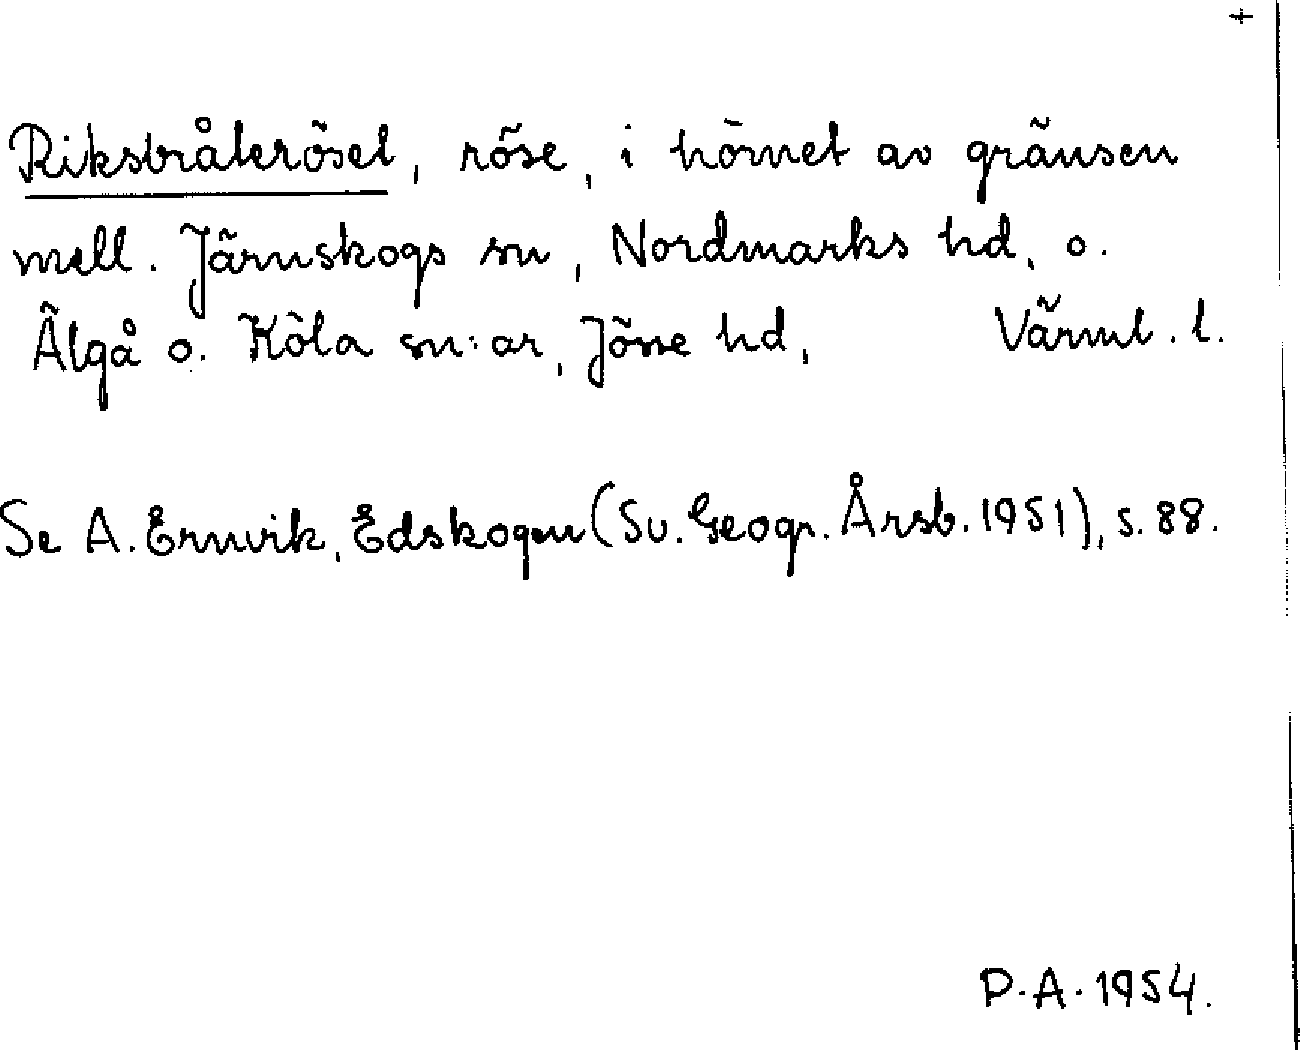 +
Riksbråterösel, röse, i hörnet av gränsen
mell. Järnskogs sn, Nordmarks hd, o.
Älgå o. Köla sn:ar, Jösse hd, Värml. l.
Se A. Ernvik, Edskogen (Sv. Geogr. Årsb. 1951), s. 88.
P.A. 1954.